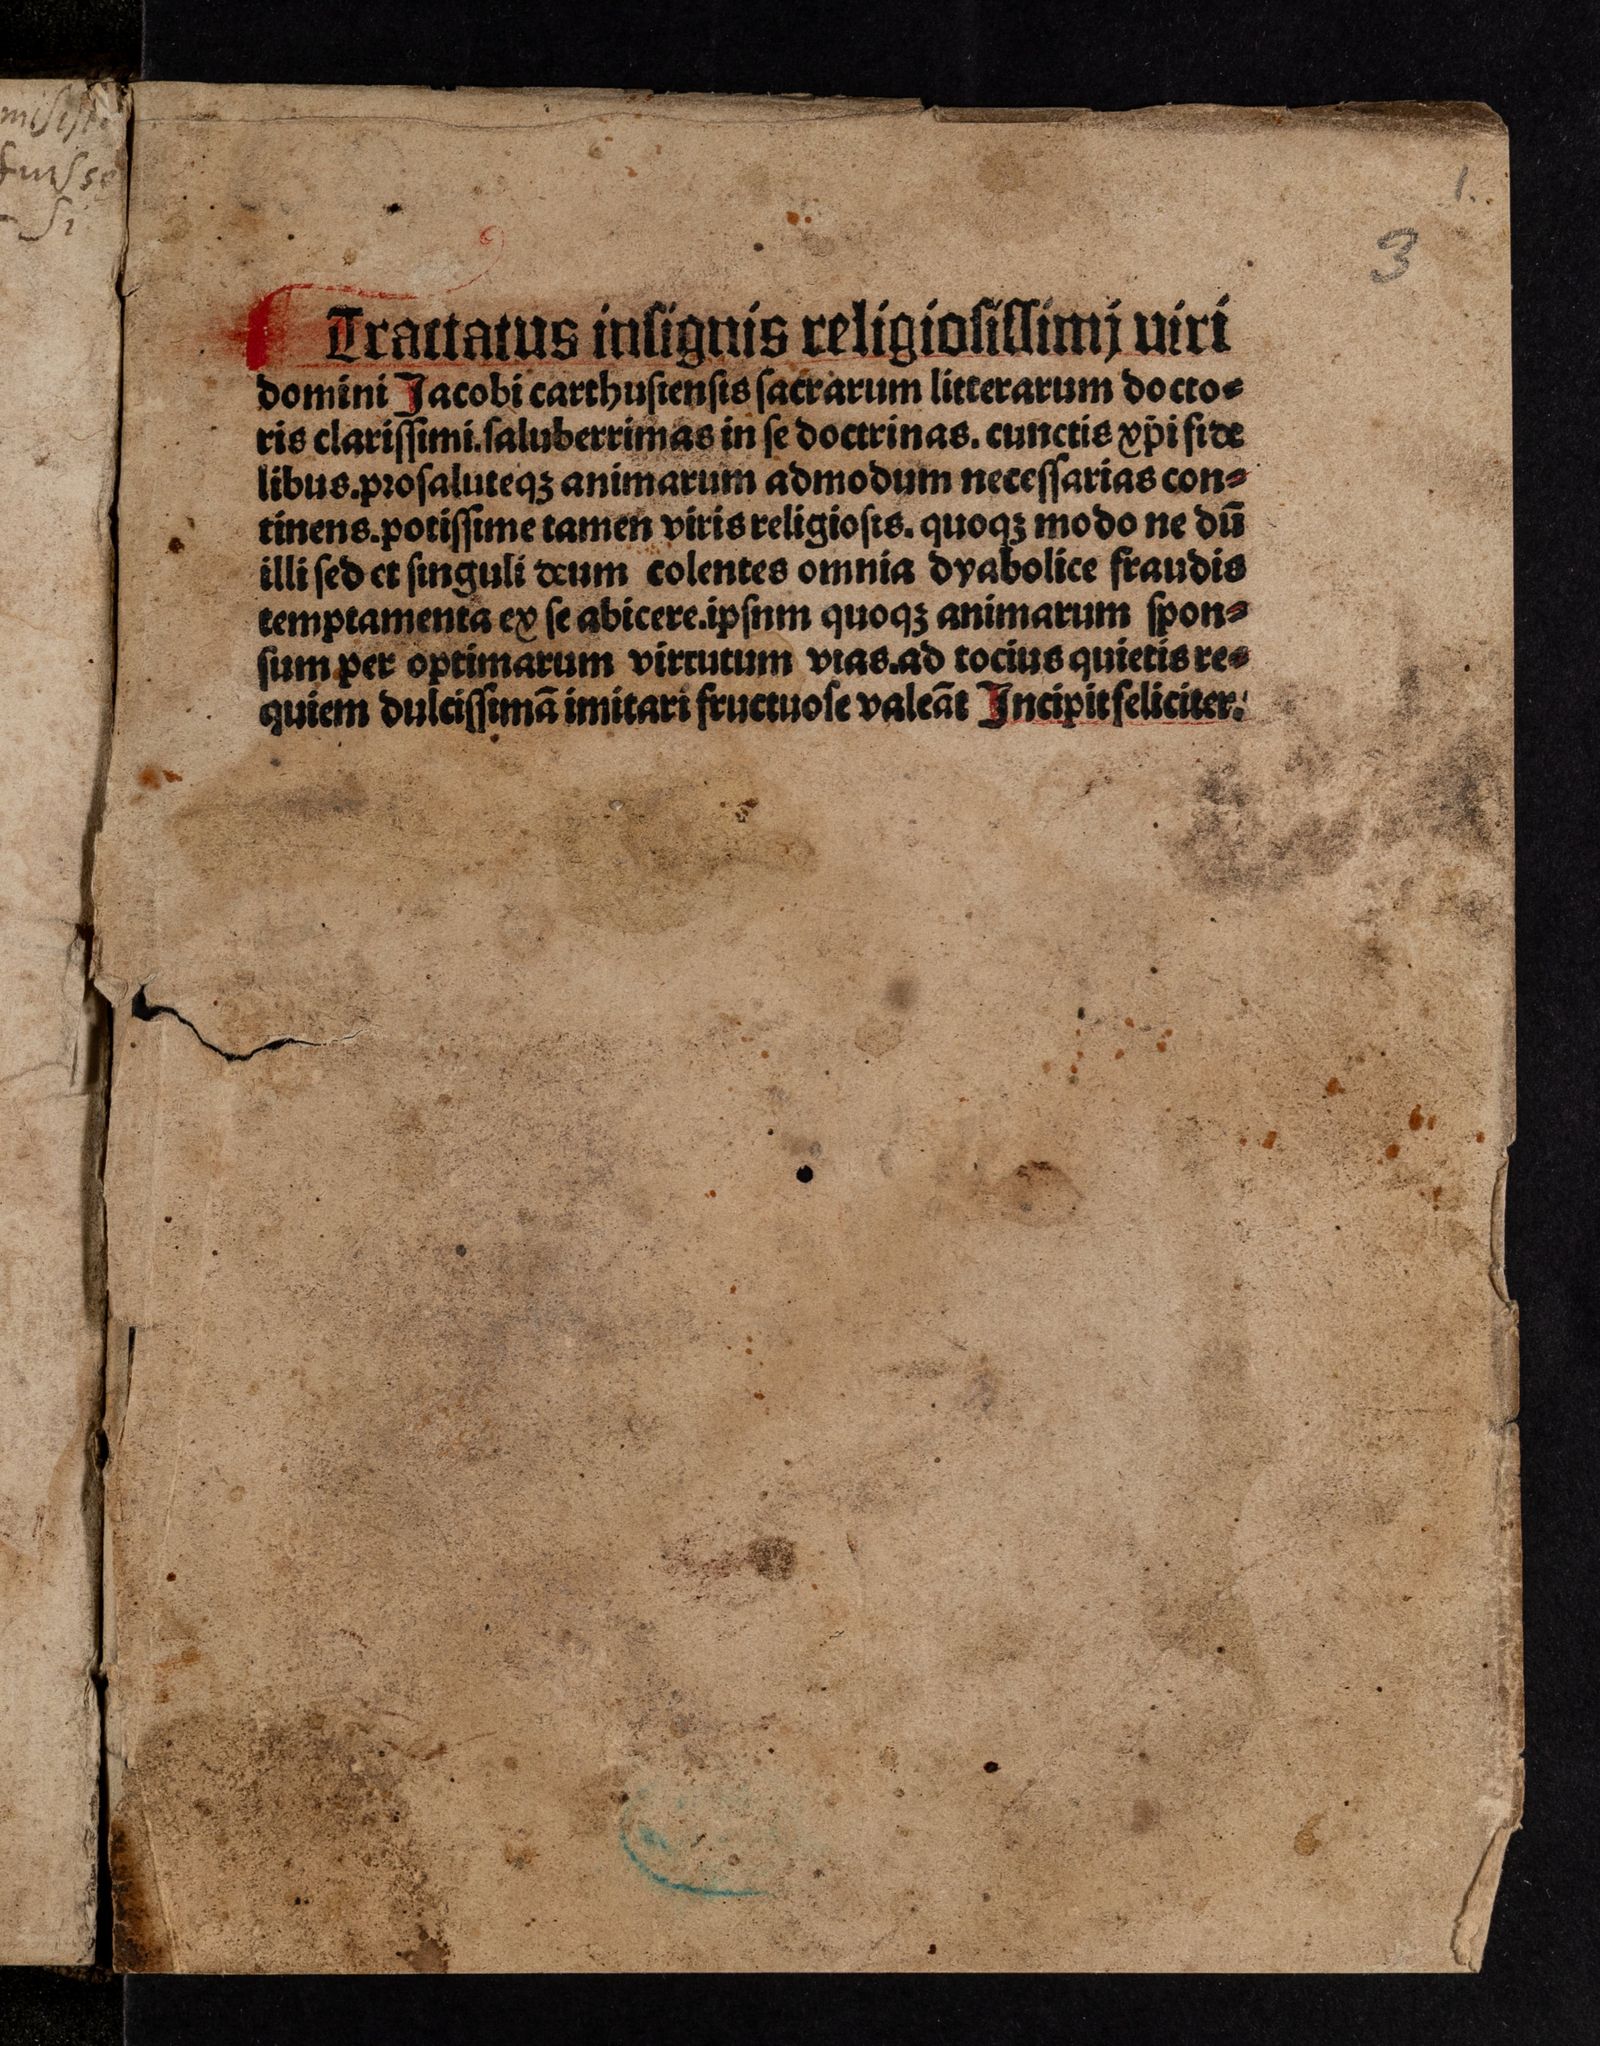 misist
fuisse
si
1.
3
Tractatus insignis religiosissimj viri
domini Jacobi carthusiensis sacrarum litterarum docto⸗
ris clarissimi.saluberrimas in se doctrinas. cunctis xp̄i fide
libus.pro saluteqꝫ animarum admodum necessarias con⸗
tinens.potissime tamen viris religiosis. quoqꝫ modo ne dū
illi sed et singuli deum colentes omnia dyabolice fraudis
temptamenta ex se abicere.ipsum quoqꝫ animarum spon⸗
sum per optimarum virtutum vias.ad tocius quietis re⸗
quiem dulcissimā imitari fructuose valeāt Incipit feliciter.